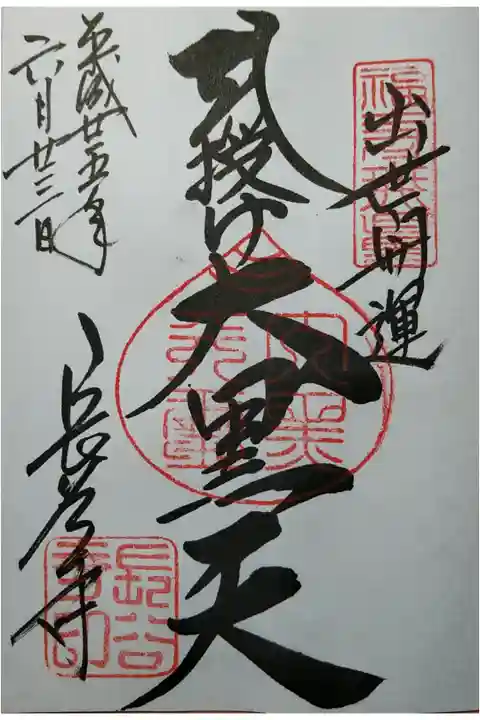 出世開運
授け大黒天
平成廿五年
六月廿三日
長谷寺
長谷
寺印